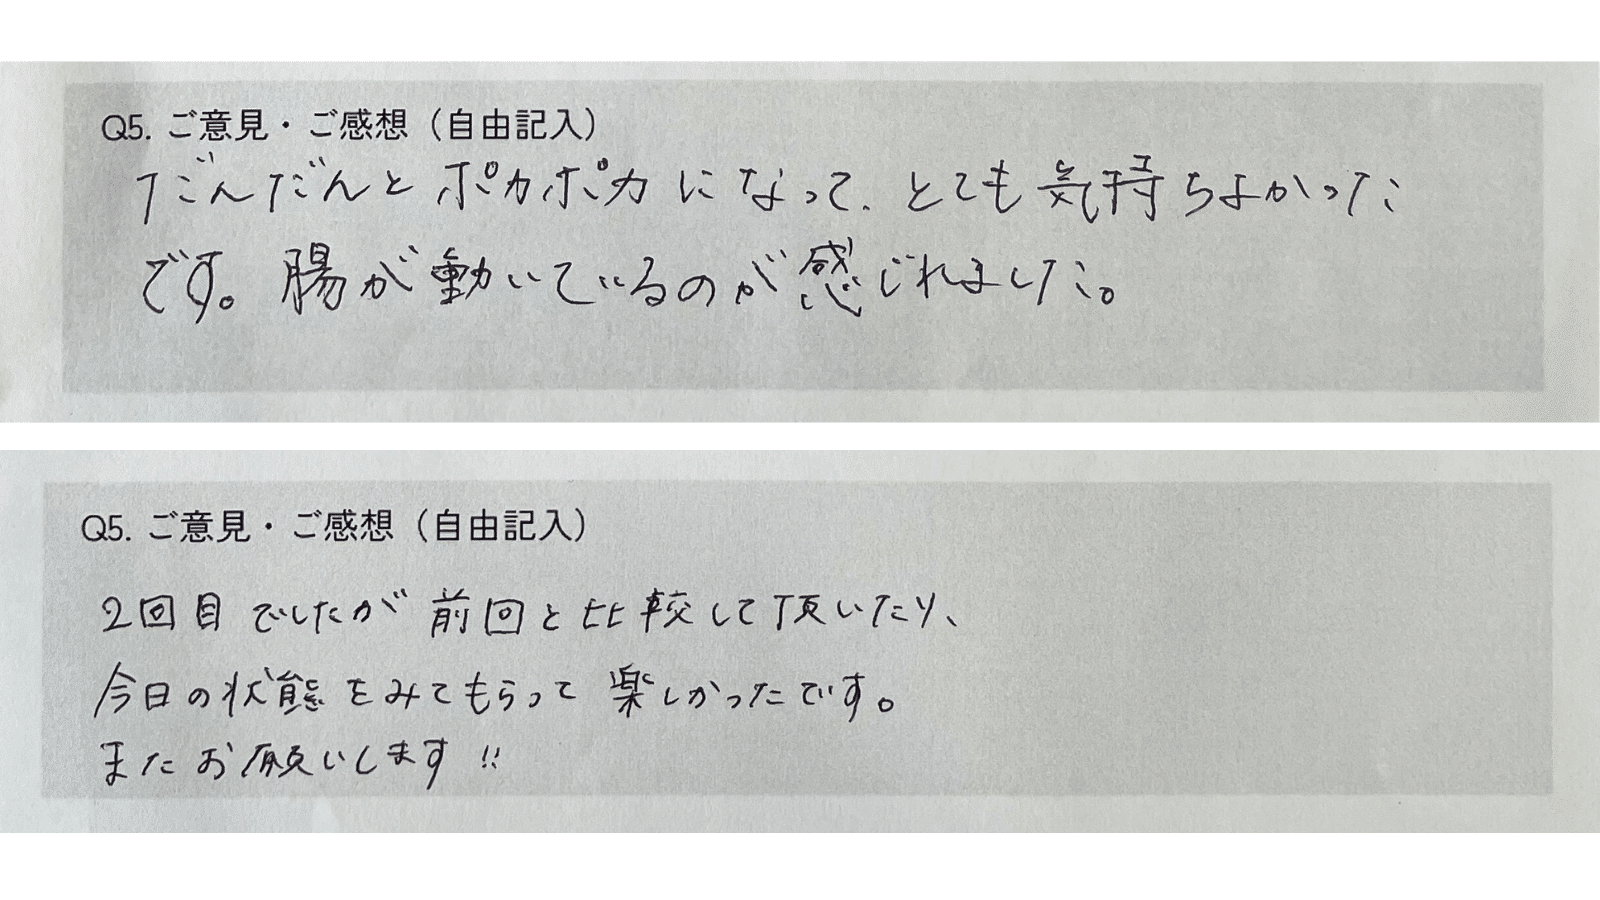 Q5. ご意見・ご感想（自由記入）
だんだんとポカポカになって、とても気持ちよかった
です。腸が動いているのが感じれました。
Q5. ご意見・ご感想（自由記入）
2回目でしたが前回と比較して頂いたり、
今日の状態をみてもらって楽しかったです。
またお願いします!!